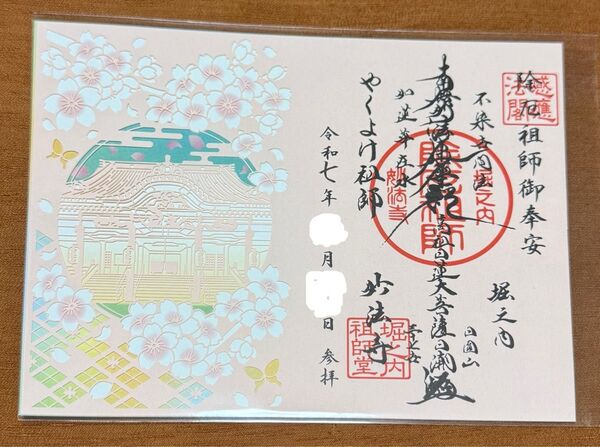 除厄祖師御奉安
感應
法閣
堀之内
日圓山
不染世間法
如蓮華在水
南無妙法蓮華経
高祖日蓮大菩薩
除厄祖師
堀之内
妙法寺
やくよけ祖師
妙法寺
堀之内
祖師堂
令和七年
月
日
参拝